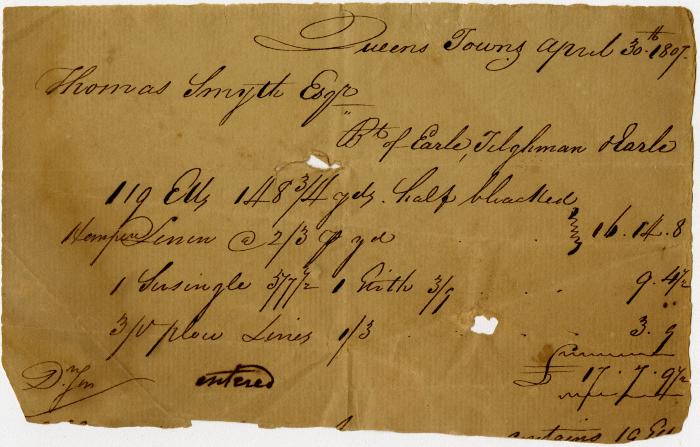 Queens Town April 30th 1807.
Thomas Smyth Esqr
Bt of Earle, Tilghman & Earle
119 Ells 148 3/4 yds. half bleached
Hempen Linen @ 2/3 p yd 16.14.8
1 Sursingle 5/7½ 1 Girth 3/9 9.4½
3 pr plow Lines 1/3 3.9
£ 17.7.9½
entered
contains 19 Ell